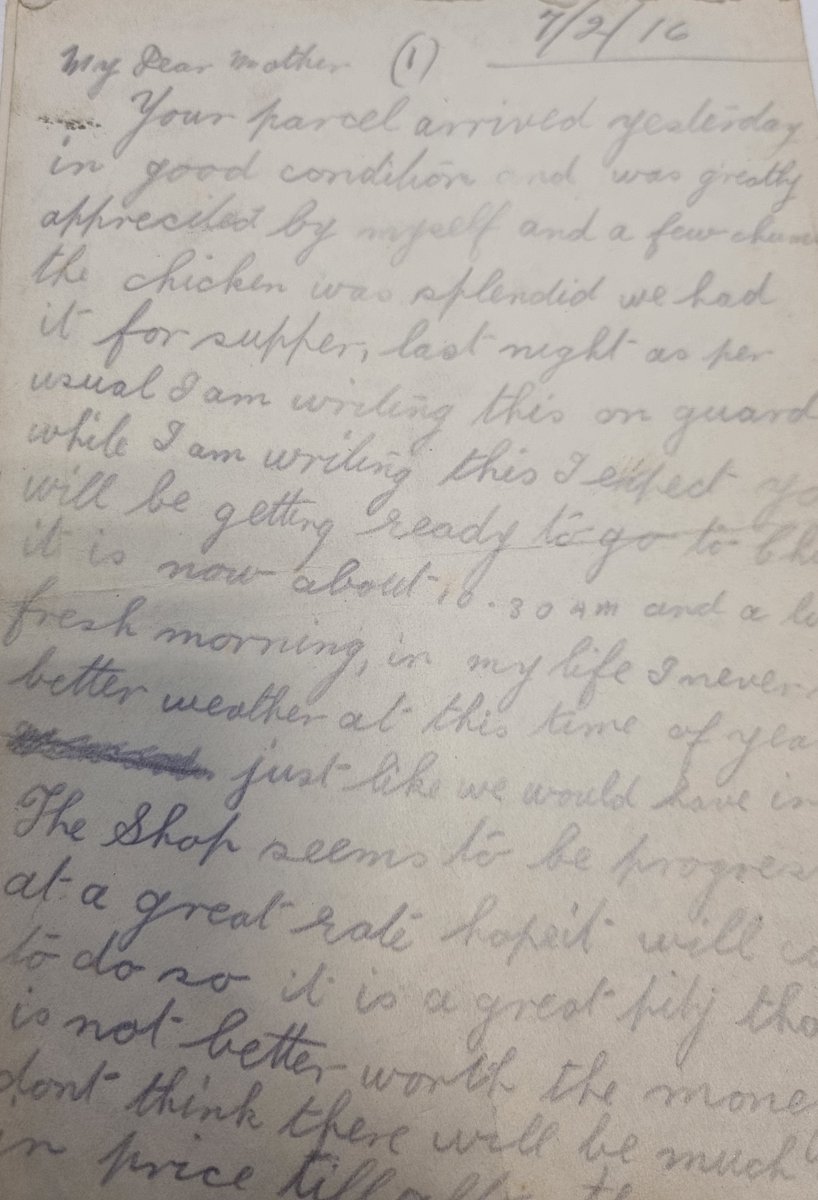 7/2/16
My Dear Mother (1)
Your parcel arrived yesterday
in good condition and was greatly
apprecited by myself and a few chum
the chicken was splendid we had
it for supper, last night as per
usual I am writing this on guard
while I am writing this I expect yo
will be getting ready to go to Ch
it is now about 10.30 AM and a
fresh morning, in my life I never
better weather at this time of yea
just like we would have in
The Shop seems to be progres
at a great rate hope it will co
to do so it is a great pity tha
is not better worth the mone
dont think there will be much
in price till